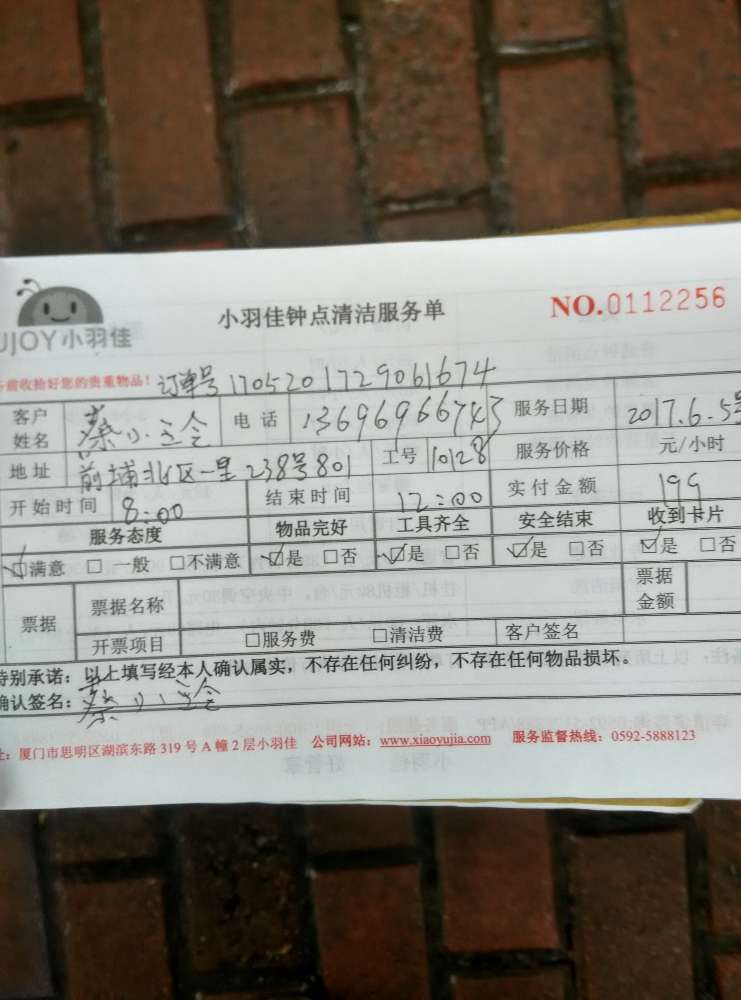 UJOY小羽佳
小羽佳钟点清洁服务单
NO.0112256
务前收拾好您的贵重物品! 订单号 1705201729061674
客户姓名 电话 13696966743 服务日期 2017.6.5号
地址 前埔北区一里238号801 工号 10128 服务价格 元/小时
开始时间 8:00 结束时间 12:00 实付金额 199
服务态度 物品完好 工具齐全 安全结束 收到卡片
☑满意 □一般 □不满意 ☑是 □否 ☑是 □否 ☑是 □否 ☑是 □否
票据 票据名称 票据金额
开票项目 □服务费 □清洁费 客户签名
特别承诺:以上填写经本人确认属实,不存在任何纠纷,不存在任何物品损坏。
确认签名:
址:厦门市思明区湖滨东路 319 号 A 幢 2 层小羽佳 公司网站:www.xiaoyujia.com 服务监督热线:0592-5888123